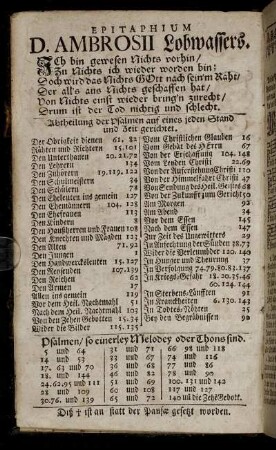 EPITAPHIUM
D. AMBROSII Lobwassers.
Ich bin gewesen Nichts vorhin /
In Nichts ich wieder worden bin:
Doch wird das Nichts GOtt nach sein'm Räht /
Der all's aus Nichts geschaffen hat /
Von Nichts einst wieder bring'n zurecht /
Drum ist der Tod nichtig und schlecht.
Abtheilung der Psalmen auf eines jeden Stand
und Zeit gerichtet.
Der Obrigkeit dienen 61. 82
Rähten und Richtern 15. 101
Den Unterthanen 20. 21. 72
Den Lehrern 134
Den Zuhörern 19. 119. 122
Den Schulmeistern
Den Schülern 78
Den Eheleuten ins gemein 127
Den Ehemännern 104. 112
Den Ehefrauen 113
Den Kindern
Den Haußherren und Frauen 108
Den Knechten und Mägden 123
Den Alten 71. 92
Den Jungen
Den Handwercksleuten 15. 127
Den Reysenden 107. 139
Den Reichen
Den Armen 17
Allen ins gemein 119
Vor dem Heil. Nachtmahl 51
Nach dem Heil. Nachtmahl 103
Von den Zehen Geboten 15. 34
Wider die Bilder 115. 135
Vom Christlichen Glauben 16
Vom Gebät des HErrn 67
Von der Erschaffung 104. 148
Vom Leyden Christi 22. 69
Von der Auferstehung Christi 110
Von der Himmelfahrt Christi 47
Von Sendung des Heil. Geistes 68
Von der Zukunft zum Gericht 50
Am Morgen 92
Am Abend 34
Vor dem Essen 145
Nach dem Essen 147
Zur Zeit des Ungewitters
In Anfechtung der Sünden 38. 73
Wider die Verleumbder 120. 140
In Hunger und Theurung 37
In Verfolgung 74. 79. 80. 83. 137
In Kriegs-Gefahr 18. 20. 35. 46
60. 124. 144
In Sterbens-Läufften 91
In Kranckheiten 6. 130. 143
In Todtes-Nöhten 25
Bey den Begräbnüssen 90
Psalmen / so einerley Melodey oder Thons sind.
5 und 64
14 und 53
17. 63 und 70
18 und 144
24. 62. 95 und 111
28 und 109
30. 76. und 139
31 und 71
33 und 67
36 und 68
46 und 82
51 und 69
60 und 108
65 und 72
66 98 und 118
74 und 116
77 und 86
78 und 90
100. 131 und 142
117 und 127
140 uñ die Zehē Gebott.
Diß † ist an statt der Pausæ gesetzt worden.